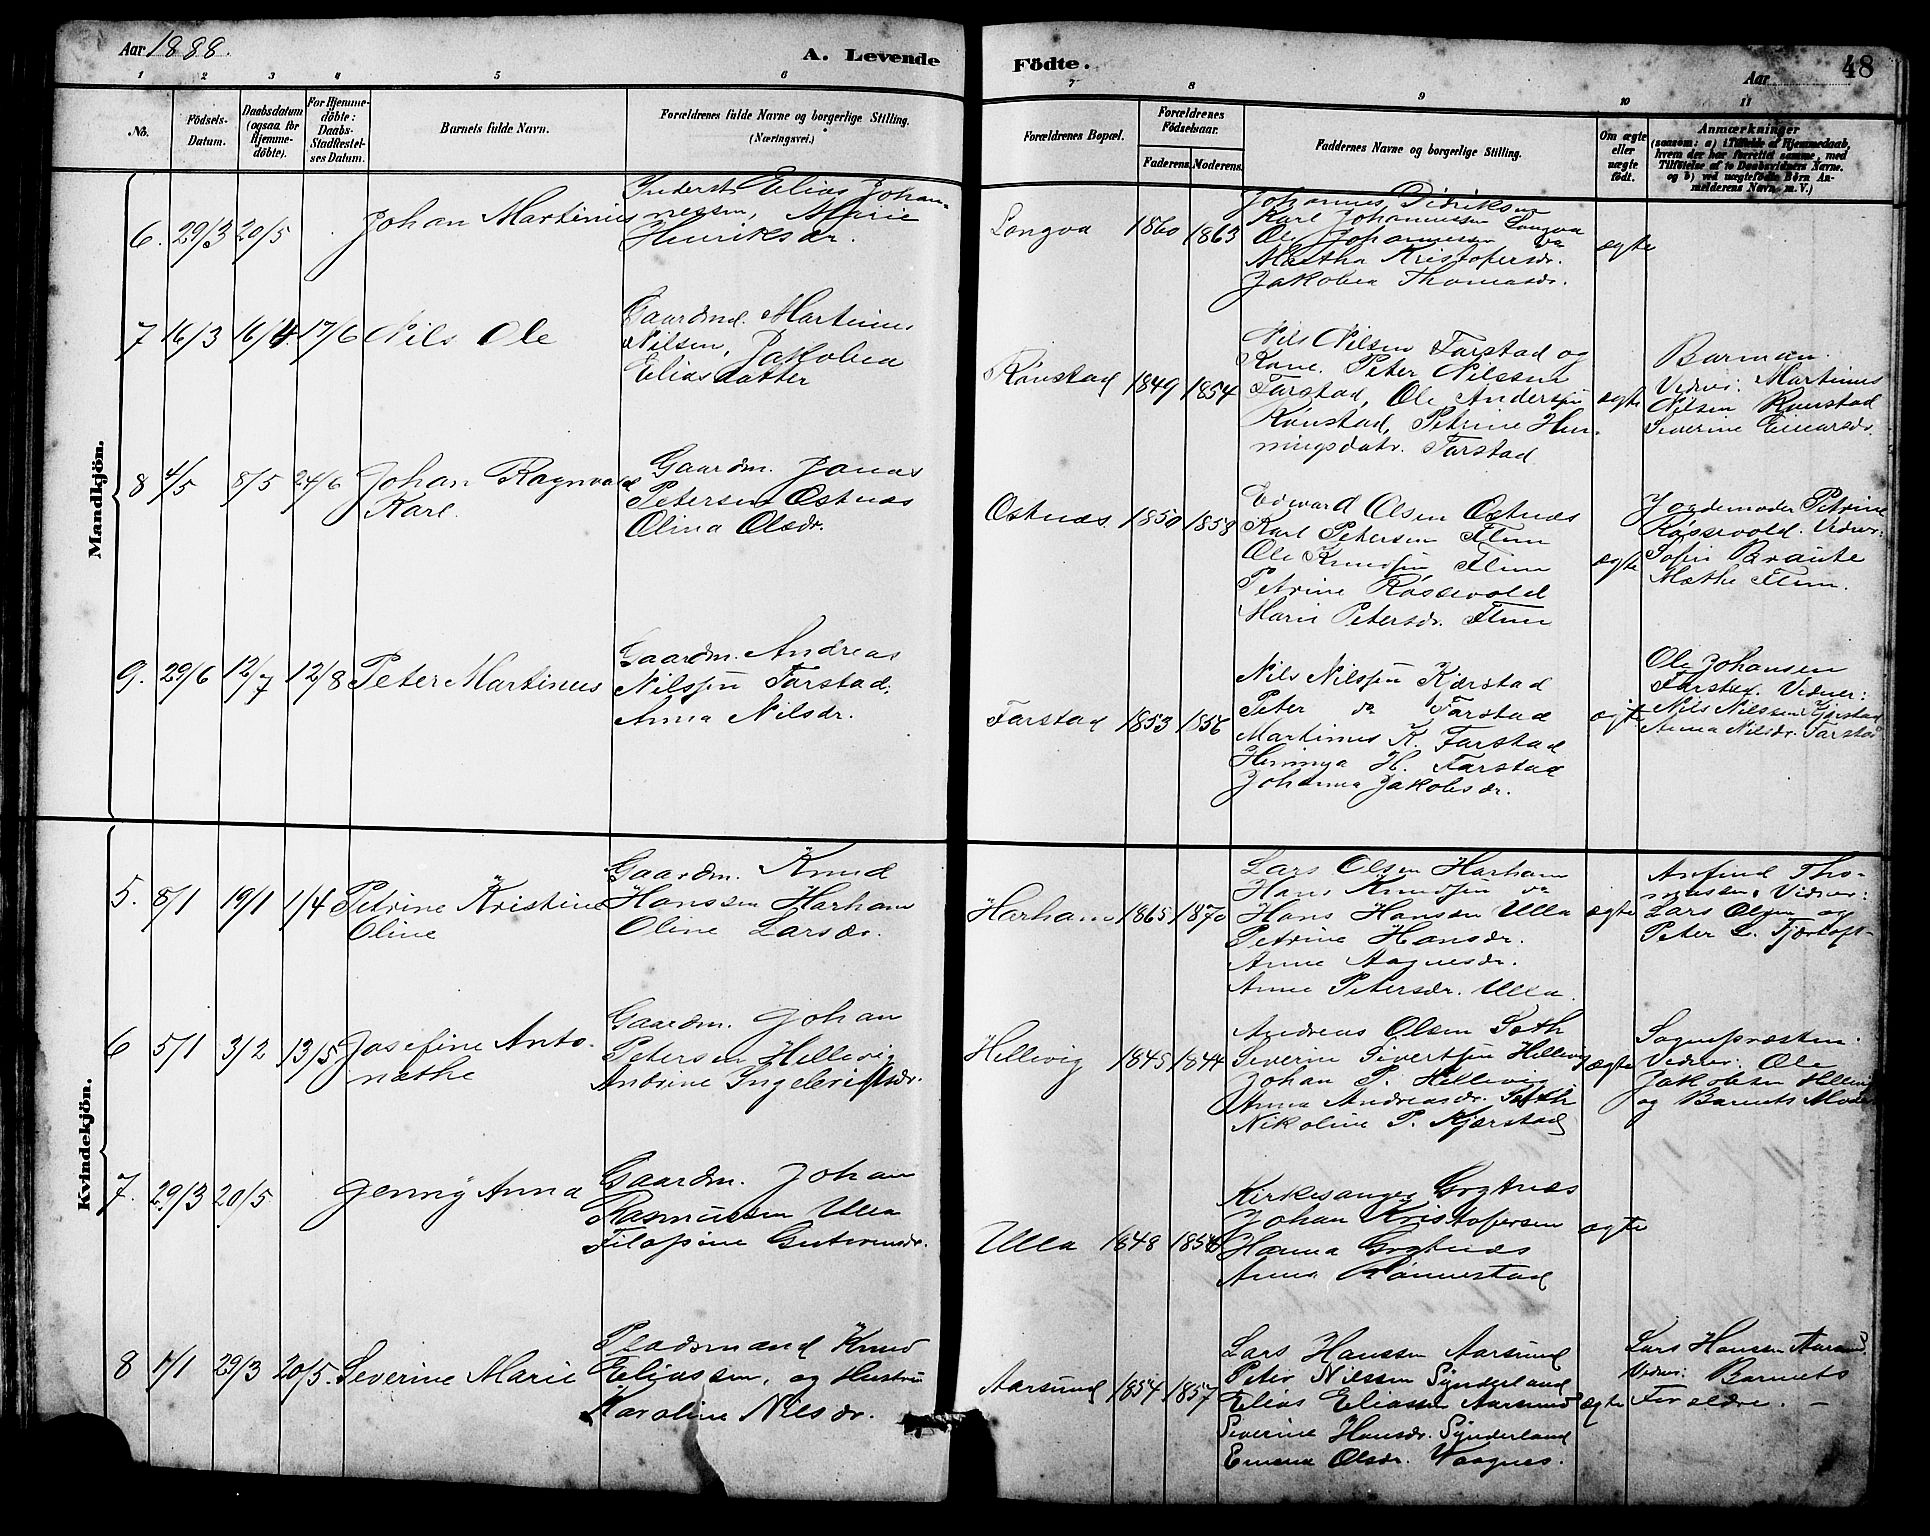 Aar 1888.
A. Levende
Födte.
Aar
48
1 2 3 4 5 6 7 8 9 10 11
No.
Födsels-
Datum.
Daabsdatum
(ogsaa for
Hjemme-
döbte).
For Hjemme-
döbte:
Daabs-
Stadfæstel-
ses Datum.
Barnets fulde Navn.
Forældrenes fulde Navne og borgerlige Stilling.
(Næringsvei.)
Forældrenes Bopæl.
Forældrenes
Födselsaar.
Faderens. Moderens.
Faddernes Navne og borgerlige Stilling.
Om ægte
eller
uægte
födt.
Anmærkninger
(saasom: a) i Tilfælde af Hjemmedaab,
hvem der har forrettet samme, med
Tilföielse af to Daabsvidners Navne,
og b) ved uægtefödte Börn An-
melderens Navn, m. V.)
Mandkjön.
6. 29/3 20/5
Johan Martinius
Inderst Elias Johan-
nessen, Marie
Henriksdr.
Longva 1860 1863
Johannes Didriksen
Karl Johannessen Longva
Ole Johannessen do
Martha Kristofersdr.
Jakobea Thomasdr.
ægte
7 16/3 16/4 17/6 Nils Ole
Gaardmd. Martinus
Nilsen, Jakobea
Eliasdatter
Rönstad 1849 1854
Nils Nilsen Farstad og
Kone. Peter Nilssen
Farstad, Ole Andersen
Rönstad, Petrine Hen-
ningsdatr. Farstad
ægte
Barman.
Vidner: Martinus
Nilsen Rönstad
Severine Einarsdr.
8 4/5 8/5 24/6 Johan Ragnvald
Karl.
Gaardm. Jonas
Petersen Östnæs
Olina Olsdr.
Östnæs 1850 1858
Edvard Olsen Östnæs
Karl Petersen Flem
Ole Knudsen Flem
Petrine Røsevold
Marie Petersdr. Flem
ægte
Jordemoder Petrine
Røssevold. Vidner:
Sofie Braute
Mathe Flem.
9. 29/6 12/7 12/8 Peter Martinus
Gaardm. Andreas
Nilssen Farstad.
Anna Nilsdr.
Farstad 1853 1856
Nils Nilssen Kjærstad
Peter do Farstad
Martinus K. Farstad
Henninga H. Farstad
Johanna Jakobsdr.
ægte
Ole Johansen
Farstad. Vidner:
Nils Nilssen Kjærstad
Anna Nilsdr. Farstad
Kvindekjön.
5. 8/1 19/1 1/4 Petrine Kristine
Oline
Gaardm. Knud
Hanssen Harham
Oline Larsdr.
Harham 1865 1870
Lars Olsen Harham
Hans Knudsen do
Hans Hansen Ulla
Petrine Hansdr.
Anne Aagnesdr.
Anne Petersdr. Ulla.
ægte
Anfind Tho-
massen. Vidner:
Lars Olsen og
Peter L. Fjærtoft-
6 5/1 3/2 13/5 Josefine Anto-
nathe
Gaardm. Johan
Petersen Hellevig
Andrine Ingebrigtsdr.
Hellevig 1845 1844
Andreas Olsen Soth
Severine Sivertsen Hellevig
Johan P. Hellevig
Anna Andreasdr. Soth
Nikoline P. Kjærstad
ægte
Sognepræsten.
Vidner: Ole
Jakobsen Hellevig
og Barnets Moder
7. 29/3 20/5 Jenny Anna
Gaardm. Johan
Rasmussen Ulla
Filopine Guttormsdr.
Ulla 1848 1856
Kirkesanger Grytnæs
Johan Kristofersen
Hanna Grytnæs
Anna Rönnestad
ægte
8 1/1 29/3 20/5. Severine Marie
Pladsmand Knud
Eliassen, og Hustru
Karoline Nilsdr.
Aarsund 1854 1857
Lars Hanssen Aarsund
Peter Nilssen Synderland
Elias Eliassen Aarsund
Severine Hansdr. Synderland
Emma Olsdr. Vaagnes.
ægte
Lars Hanssen Aarsund.
Vidner: Barnets
Forældre. -